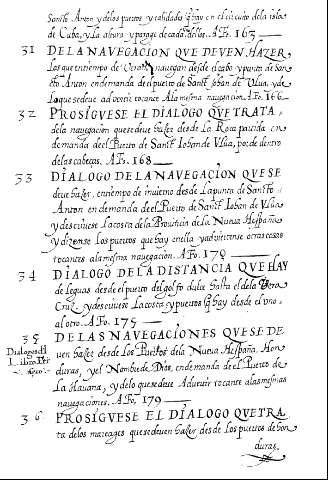 Sanct Anton y delos puertos y calidades q̃ hay en el circuito dela isla
de Cuba, y la altura y paraje de cada uno dellos. A Fo. 163
31 DE LA NAVEGACION QVE DEVEN HAZER
Los que en tiempo de Verano navegan desde el cabo y punta de San-
cto Anton en demanda de el puerto de Sanct Johan de Vlua, y de
Lo que se deve advertir tocante A la mesma navegacion. A Fo. 166
32 PROSIGVESE EL DIALOGO QVE TRATA
dela navegacion que se deve hazer desde La Roca partida en
demanda de el Puerto de Sanct Johan de Vlua, por de dentro
de las cabeças. A Fo. 168
33 DIALOGO DE LA NAVEGACION QVE SE
deve hazer, en tiempo de invierno desde La punta de Sancto
Anton en demanda de el Puerto de Sanct Johan de Vlua
y descrivese La costa dela Provincia de la Nueva Hespaña
y dizense los puertos que hay en ella y advierten se otras cosas
tocantes a la mesma navegacion. A Fo. 170
34 DIALOGO DE LA DISTANCIA QVE HAY
de leguas desde el puerto del golfo dulce hasta el dela Vera
Cruz, y descrivese La costa y puertos q̃ hay desde el uno
al otro. A Fo. 175
35 DE LAS NAVEGACIONES QVE SE DE
ven hazer desde Los Puertos dela Nueva Hespaña, Hon
duras, y el Nombre de Dios, en demanda de el puerto de
La Havana, y de lo que se deve Advertir tocante a las mesmas
navegaciones. A Fo. 179
36 PROSIGVESE EL DIALOGO QVE TRA
ta delos mareages que se deven hazer desde Los puertos de hon
duras